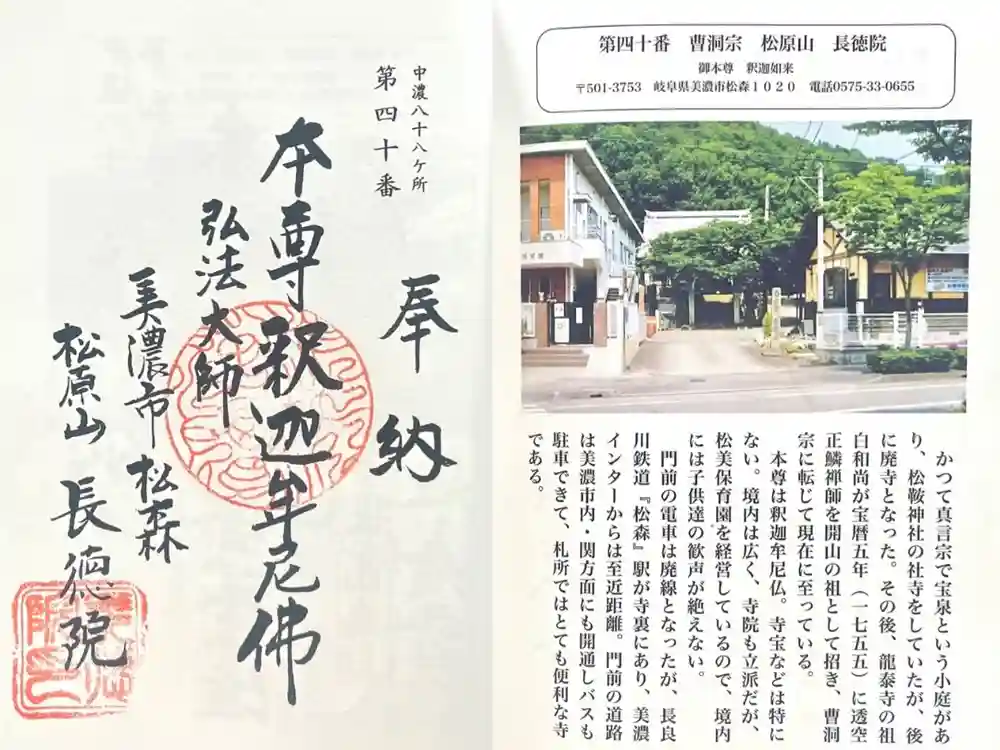 中濃八十八ケ所
第四十番
奉納
本尊釈迦牟尼佛
弘法大師
美濃市松森
松原山長徳院
第四十番　曹洞宗　松原山　長徳院
御本尊　釈迦如来
〒501-3753　岐阜県美濃市松森１０２０　電話0575-33-0655
かつて真言宗で宝泉という小庭があ
り、松鞍神社の社寺をしていたが、後
に廃寺となった。その後、龍泰寺の祖
白和尚が宝暦五年（一七五五）に透空
正鱗禅師を開山の祖として招き、曹洞
宗に転じて現在に至っている。
本尊は釈迦牟尼仏。寺宝などは特に
ない。境内は広く、寺院も立派だが、
松美保育園を経営しているので、境内
には子供達の歓声が絶えない。
門前の電車は廃線となったが、長良
川鉄道『松森』駅が寺裏にあり、美濃
インターからは至近距離。門前の道路
は美濃市内・関方面にも開通しバスも
駐車できて、札所ではとても便利な寺
である。